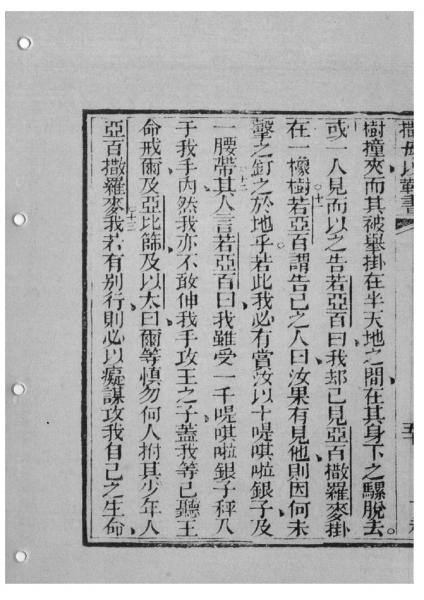 撒母以勒書　五十
樹撞夾而其被舉掛在半天地之間在其身下之騾脫去。
或一人見而以之告若亞百曰我却己見亞百撒羅麥掛
在一橡樹若亞百謂告己之人曰汝果有見他則因何未
擊之釘之於地乎若此我必有賞汝以十㖷唭啦銀子及
一腰帶其人言若亞百曰我雖受一千㖷唭啦銀子秤入
于我手內然我亦不敢伸我手攻王之子蓋我等已聽王
命戒爾及亞比篩及以太曰爾等慎勿何人拊其少年人
亞百撒羅麥我若有別行則必以癡謀攻我自己之生命